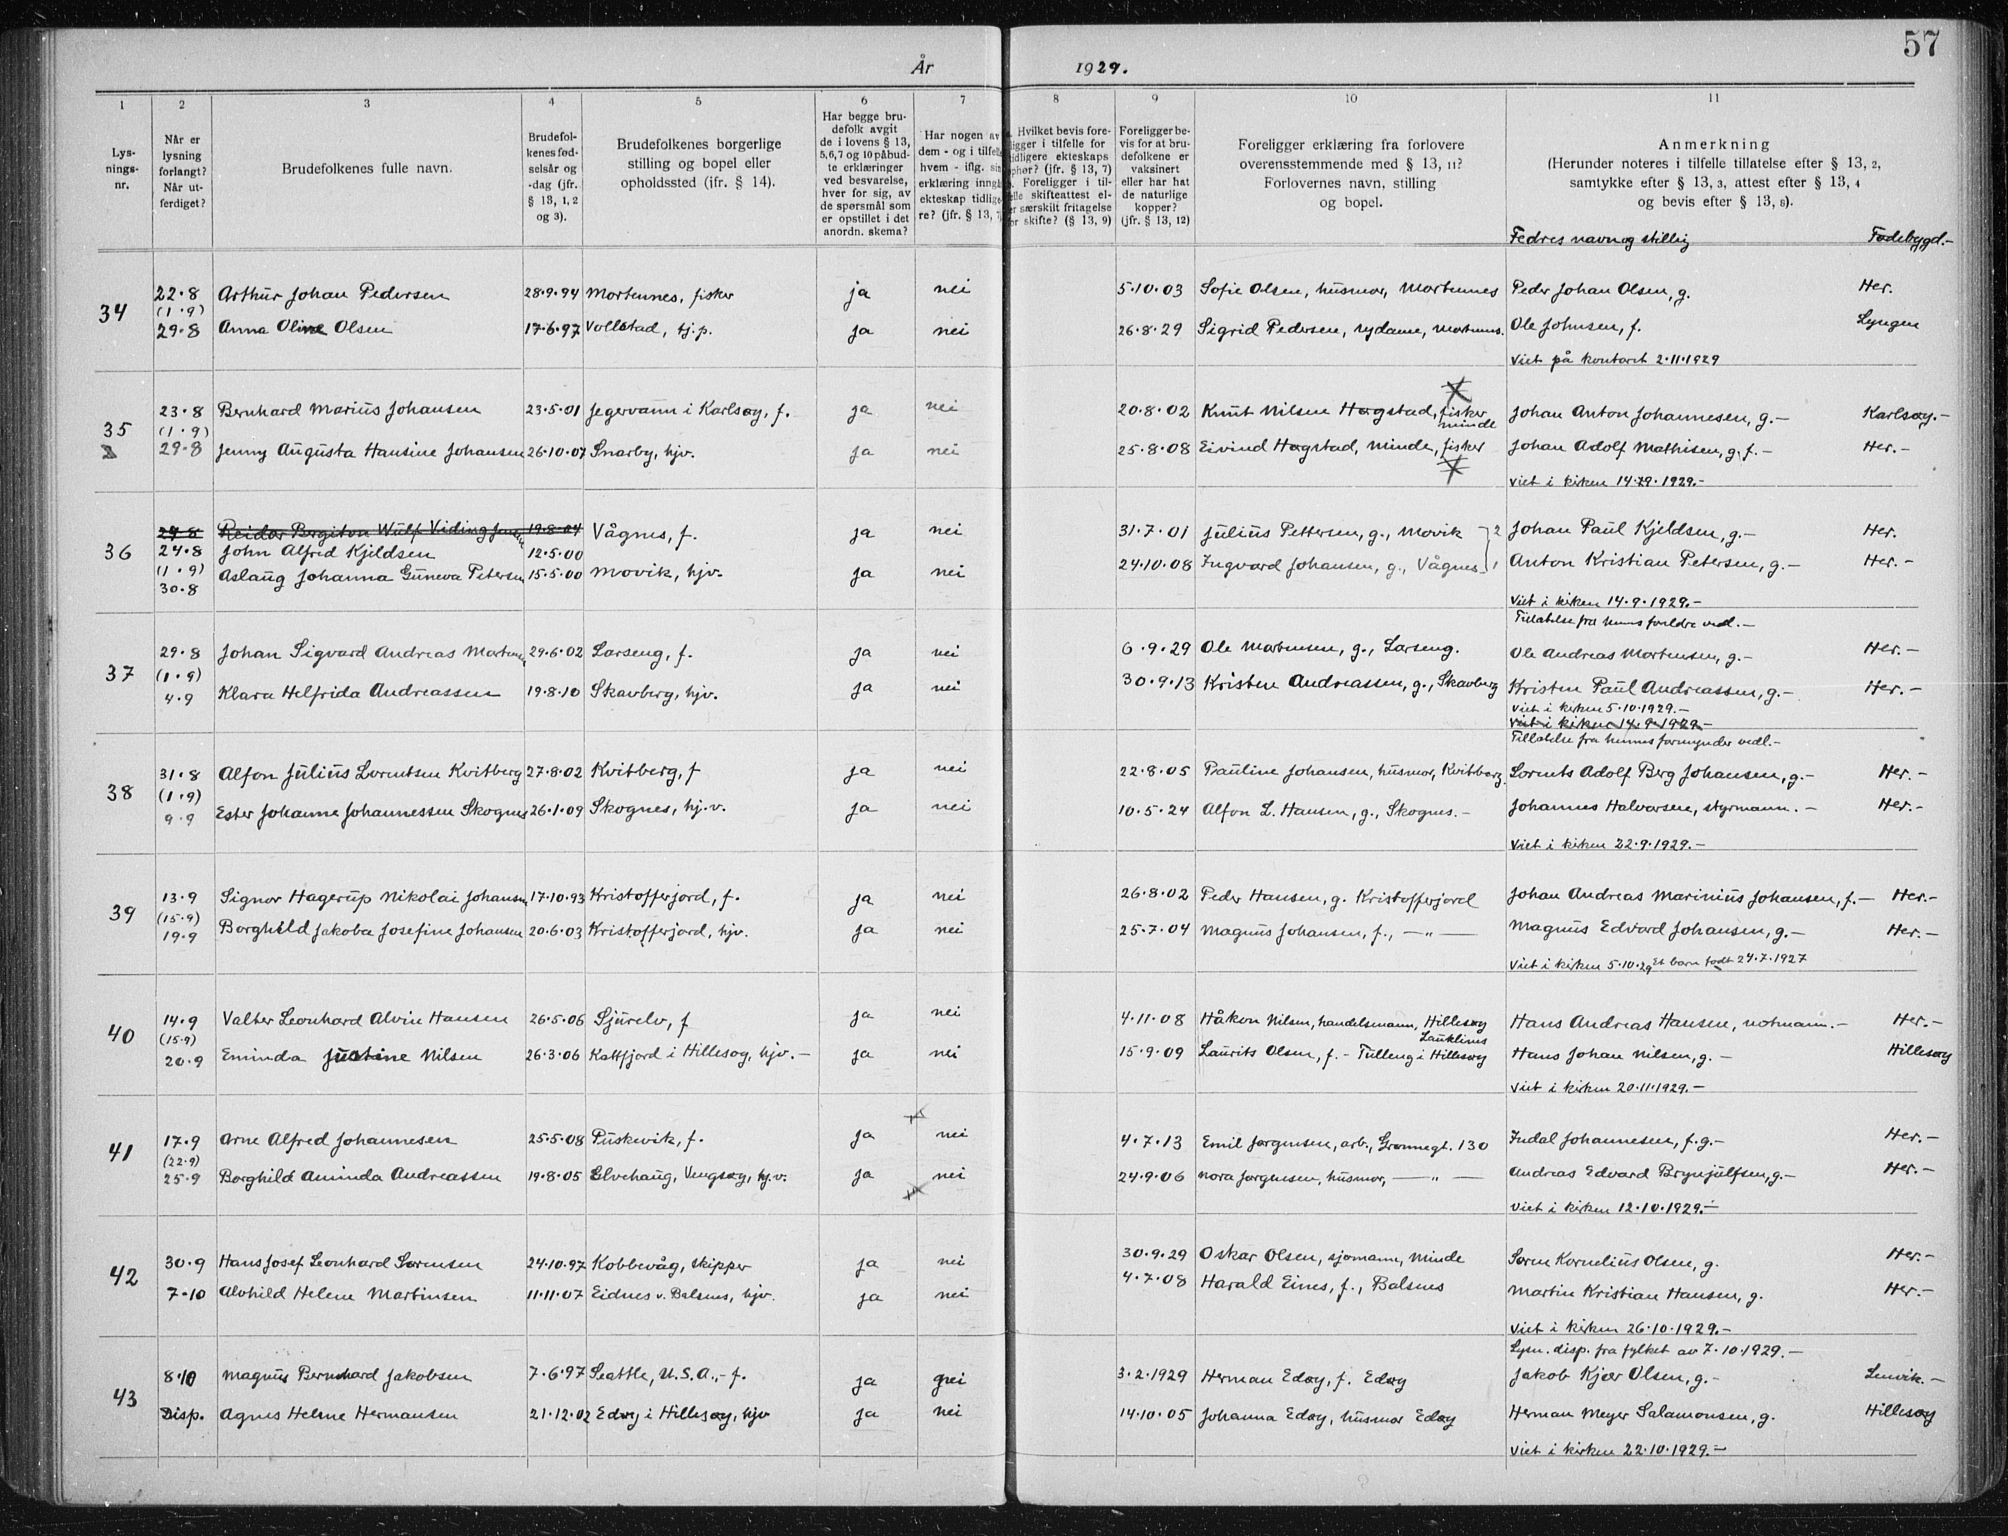 57
År 1929.
1 2 3 4 5 6 7 8 9 10 11
Lysnings-nr.
Når er lysning forlangt? Når utferdiget?
Brudefolkenes fulle navn.
Brudefolkenes fødselsår og -dag (jfr. § 13, 1, 2 og 3).
Brudefolkenes borgerlige stilling og bopel eller opholdssted (ifr. § 14).
Har begge brudefolk avgit de i lovens § 13, 5,6,7 og 10 påbudte erklæringer ved besvarelse, hver for sig, av de spørsmål som er opstillet i det anordn. skema?
Har nogen av dem - og i tilfelle hvem - iflg. sin erklæring inngått ekteskap tidligere? (jfr. § 13, 7
Hvilket bevis foreligger i tilfelle for tidligere ekteskaps ophør? (jfr. § 13, 7) Foreligger i tilfelle skifteattest eller særskilt fritagelse for skifte? (§ 13, 9)
Foreligger bevis for at brudefolkene er vaksinert eller har hat de naturlige kopper? (jfr. § 13, 12)
Foreligger erklæring fra forlovere overensstemmende med § 13, 11? Forlovernes navn, stilling og bopel.
Anmerkning (Herunder noteres i tilfelle tillatelse efter § 13, 2, samtykke efter § 13, 3, attest efter § 13, 4 og bevis efter § 13, 8).
Fedres navn og stillig Fødebygd.-
34 22.8 Arthur Johan Pedersen 28.9.94 Mortennes, fisker ja nei 5.10.03 Sofie Olsen, husmor, Mortennes Peder Johan Olsen, g. Her.
(1.9)
29.8 Anna Oline Olsen 17.6.97 Vollstad, tj.p. ja nei 26.8.29 Sigrid Pedersen, sydame, Mortennes. Ole Johnsen, f. Lyngen
Viet på kontoret 2.11.1929
35 23.8 Bernhard Marius Johansen 23.5.01 Jegervann i Karlsøy, f. ja nei 20.8.02 Knut Nilsen Hagstad, fisker minde Johan Anton Johannesen, g.- Karlsøy.-
(1.9)
29.8 Jenny Augusta Hansine Johansen 26.10.07 Snarby, hjv. ja nei 25.8.08 Eivind Hagstad, Minde, fisker Johan Adolf Mathisen, g.f.- Her.-
Viet i kirken 14.9.1929.-
36 29.8 Reidar Bergiton Wulf Viding 19.8.04 Vågnes, f. ja nei 31.7.01 Julius Pettersen, g., Movik 2 Johan Paul Kjeldsen, g.- Her.
24.8 John Alfred Kjeldsen 12.5.00
(1.9) Aslaug Johanna Guneva Petersen 15.5.00 Movik, hjv. ja nei 24.10.08 Ingvard Johansen, g., Vågnes 1 Anton Kristian Petersen, g.- Her.-
30.8
Viet i kirken 14.9.1929.-
Tillatelse fra hennes foreldre ved.-
37 29.8 Johan Sigvard Andreas Mortensen 29.6.02 Larseng, f. ja nei 6.9.29 Ole Mortensen, g., Larseng. Ole Andreas Mortensen, g.- Her.-
(1.9)
4.9 Klara Helfrida Andreassen 19.8.10 Skavberg, hjv. ja nei 30.9.13 Kristen Andreassen, g., Skavberg Kristen Paul Andreassen, g.- Her.-
Viet i kirken 5.10.1929.-
Viet i kirken 14.9.1929.-
Tillatelse fra hennes formynder vedl.-
38 31.8 Alfon Julius Lorentsen Kvitberg 27.8.02 Kvitberg, f ja nei 22.8.05 Pauline Johansen, husmor, Kvitberg. Lorents Adolf Berg Johansen, g.- Her.-
(1.9)
9.9 Ester Johanne Johannessen Skognes 26.1.09 Skognes, hj.v. ja nei 10.5.24 Alfon L. Hansen, g., Skognes.- Johannes Halvorsen, styrmann.- Her.-
Viet i kirken 22.9.1929.-
39 13.9 Signor Hagerup Nikolai Johansen 17.10.93 Kristofferjord, f. ja nei 26.8.02 Peder Hansen, g. Kristofferjord Johan Andreas Marinius Johansen, f.- Her.-
(15.9)
19.9 Borghild Jakoba Josefine Johansen 20.6.03 Kristofferjord, hjv. ja nei 25.7.04 Magnus Johansen, f., —"— Magnus Edvard Johansen, g.- Her.-
Viet i kirken 5.10.29 Et barn født 24.7.1927
40 14.9 Valter Leonhard Alvin Hansen 26.5.06 Sjurelv, f ja nei 4.11.08 Håkon Nilsen, handelsmann, Hillesøy Lauklines Hans Andreas Hansen, notmann.- Her.-
(15.9)
20.9 Eminda Justine Nilsen 26.3.06 Kattfjord i Hillesøy, hjv.- ja nei 15.9.09 Laurits Olsen, f.- Tulleng i Hillesøy Hans Johan Nilsen, g.- Hillesøy
Viet i kirken 20.11.1929.-
41 17.9 Arne Alfred Johannesen 25.5.08 Puskevik, f. ja nei 4.7.13 Emil Jørgensen, arb., Grønnegt. 130 Indal Johannesen, f.g.- Her.-
(22.9)
25.9 Borghild Aminda Andreassen 19.8.05 Elvehaug, Vengsøy, hj.v. ja nei 24.9.06 Nora Jørgensen, husmor, —"— Andreas Edvard Brynjulfsen, g.- Her.-
Viet i kirken 12.10.1929.-
42 30.9 Hans Josef Leonhard Sørensen 24.10.97 Kobbevåg, skipper ja nei 30.9.29 Oskar Olsen, sjømann, Minde Søren Kornelius Olsen, g. Her.-
7.10 Alvhild Helene Martinsen 11.11.07 Eidnes v. Balsnes, hjv. ja nei 4.7.08 Harald Eines, f., Balsnes Martin Kristian Hansen, g. Her.-
Viet i kirken 26.10.1929.-
Lysn. disp. fra fylket av 7.10.1929.-
43 8.10 Magnus Bernhard Jakobsen 7.6.97 Seattle, U.S.A.,- f. ja nei 3.2.1929 Herman Edøy, f. Edøy Jakob Kjær Olsen, g.- Lenvik.-
Disp. Agnes Helene Hermansen 21.12.02 Edøy i Hillesøy, hjv ja nei 14.10.05 Johanna Edøy, husmor Edøy Herman Meyer Salamonsen, g. Hillesøy
Viet i kirken 22.10.1929.-